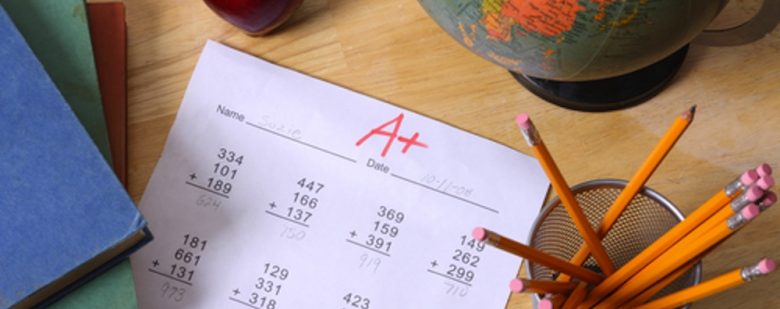 Name Suzie
A+
Date 10-11-08
334
101
+ 189
624
447
166
+ 137
750
369
159
+ 391
919
149
262
+ 299
710
181
661
+ 131
973
129
331
+ 318
423